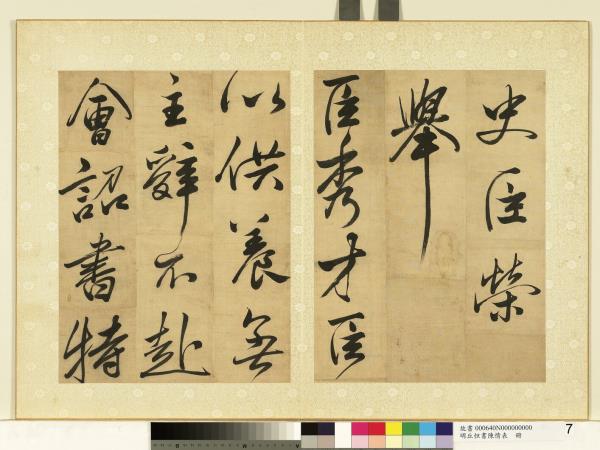 史臣榮
舉
臣秀才臣
以供養無
主辭不赴
會詔書特
故書 000640N000000000
明丘恒書陳情表 冊
7